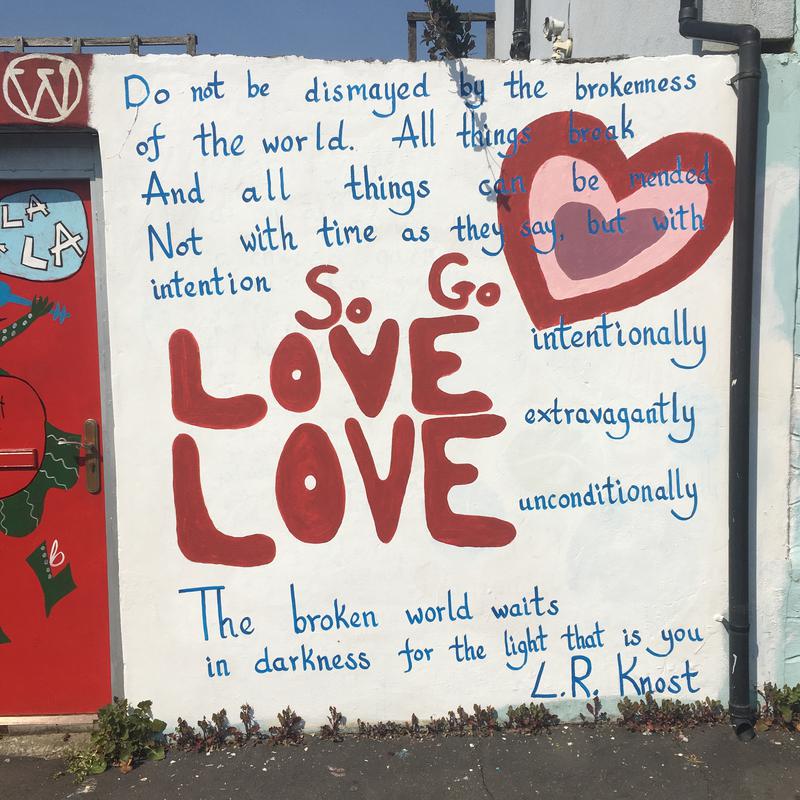 W
LA
LA
Do not be dismayed by the brokenness
of the world. All things break
And all things can be mended
Not with time as they say, but with
intention
So Go
LOVE
LOVE
intentionally
extravagantly
unconditionally
The broken world waits
in darkness for the light that is you
L.R. Knost